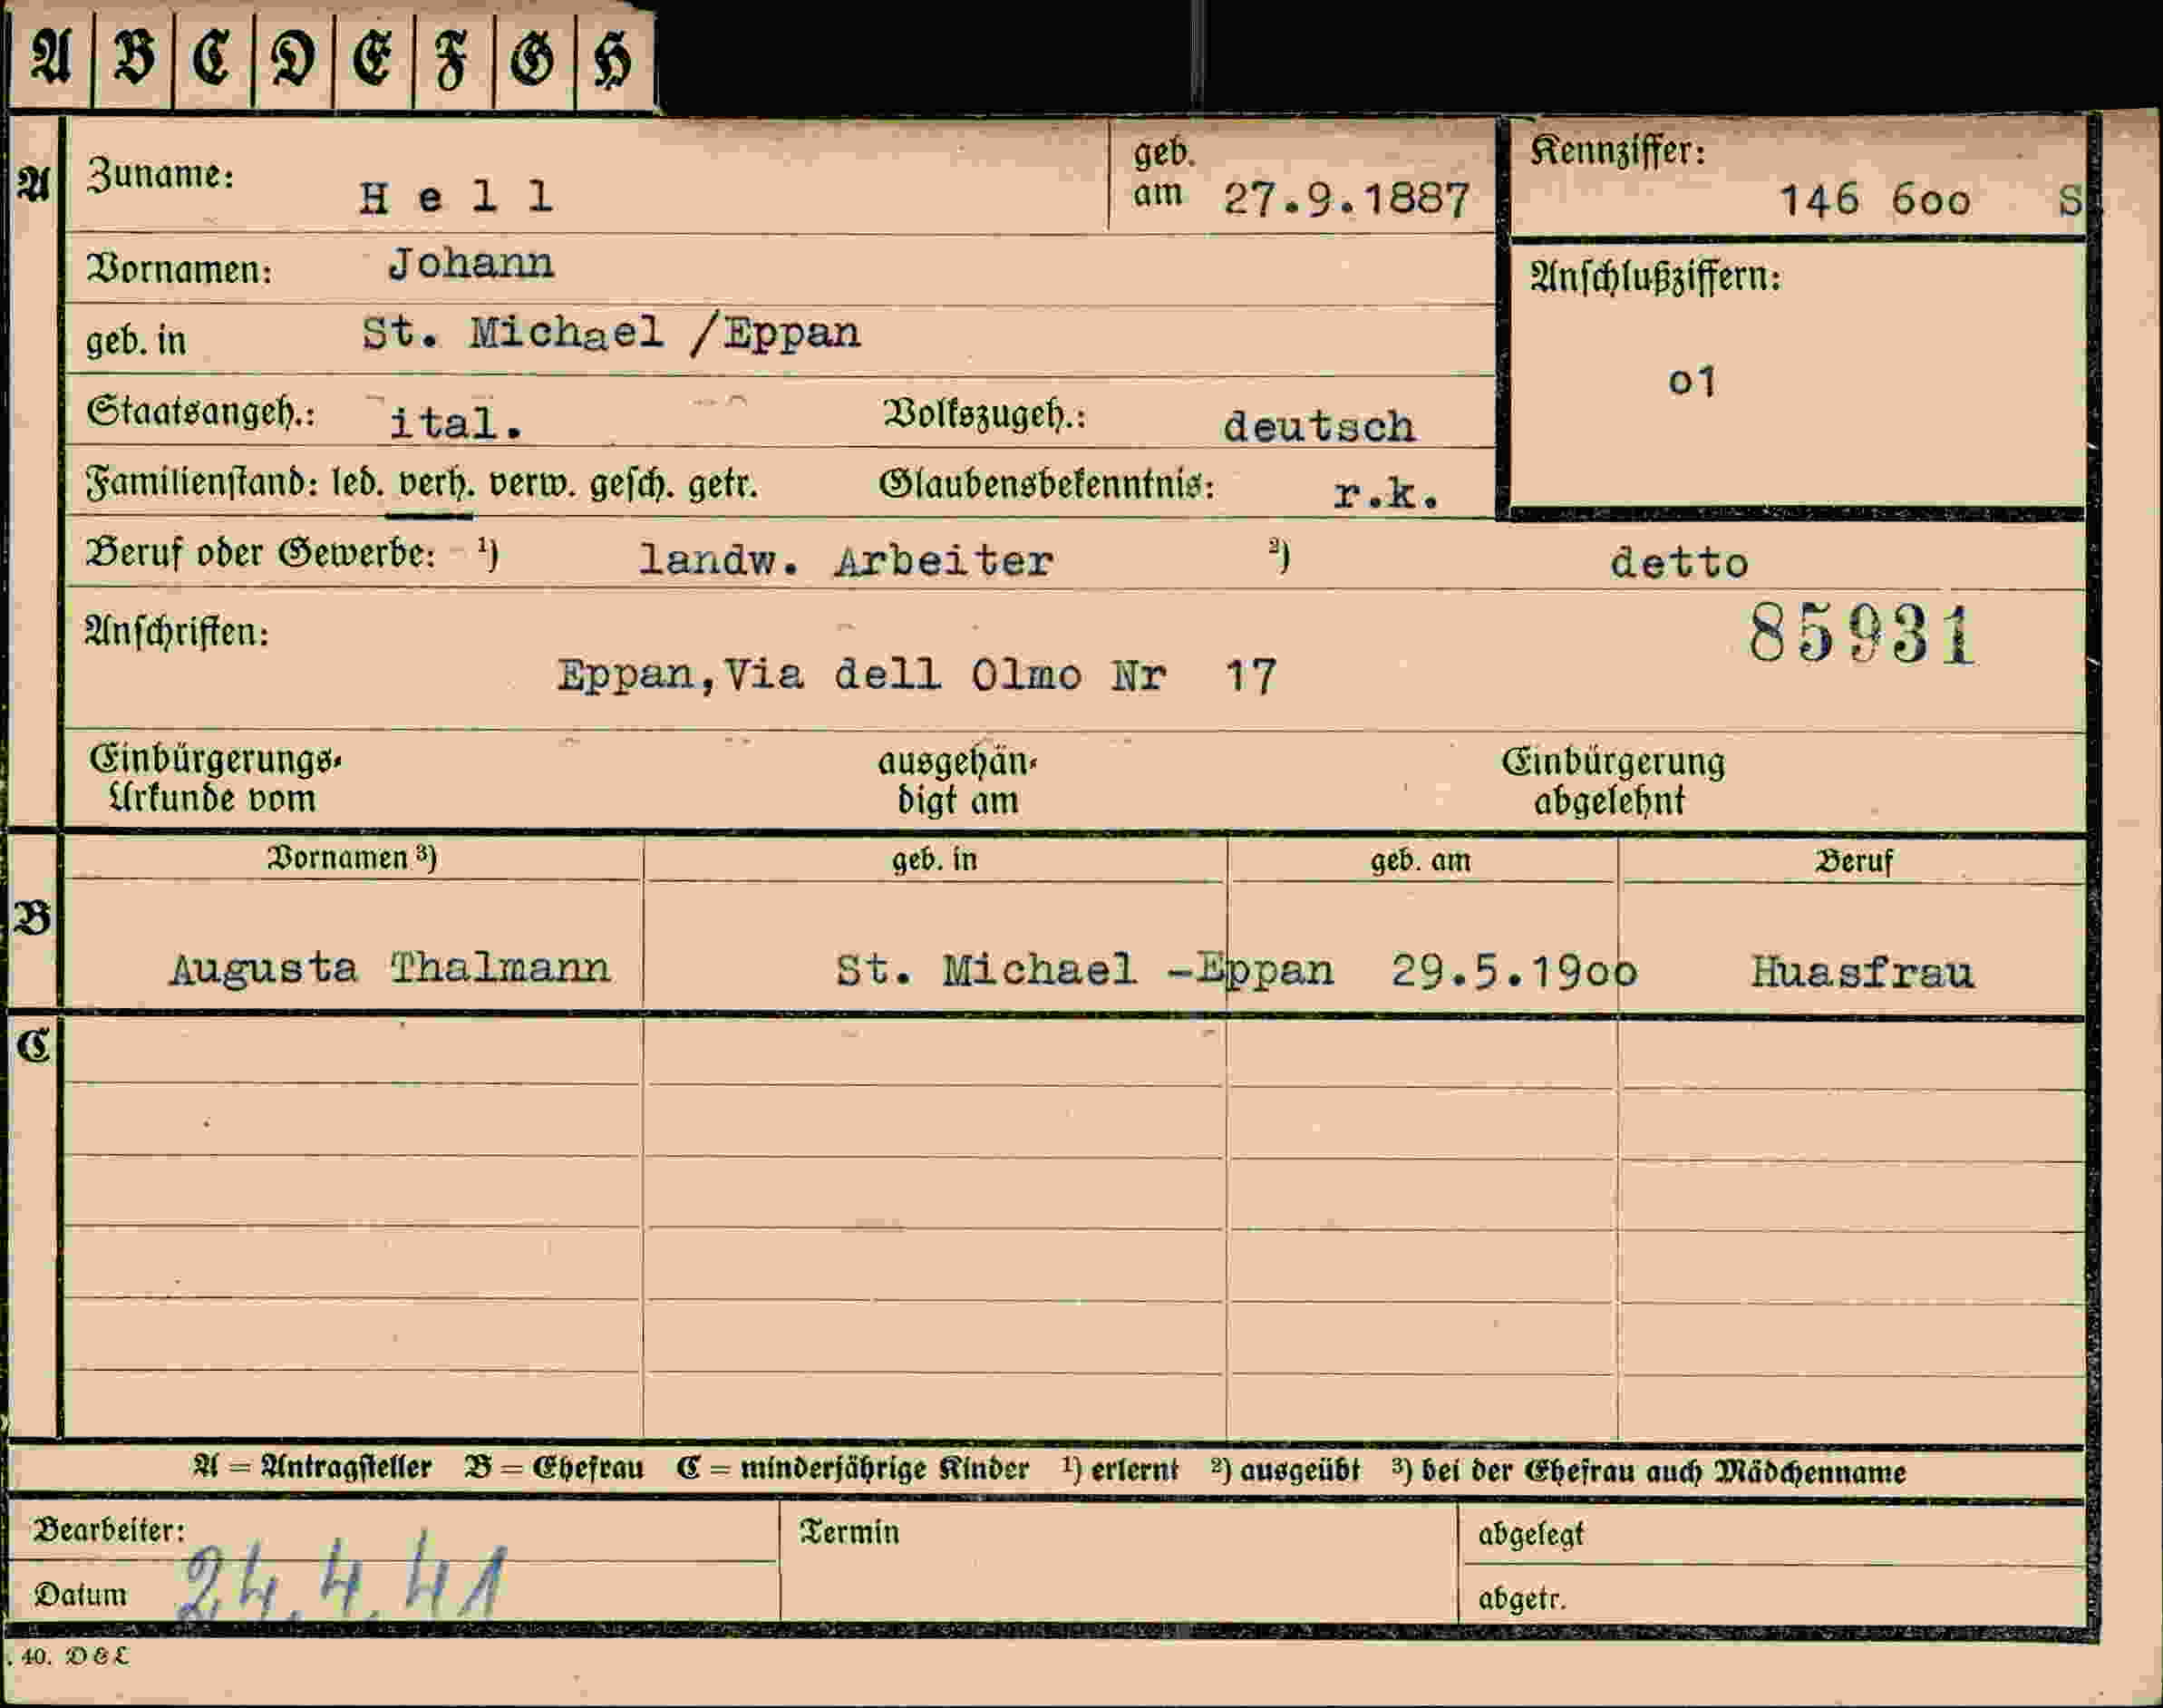 A B C D E F G H
A
Zuname: Hell
geb. am 27.9.1887
Kennziffer: 146 6oo S
Vornamen: Johann
Anschlußziffern:
o1
geb. in St. Michael /Eppan
Staatsangeh.: ital. Volkszugeh.: deutsch
Familienstand: led. verh. verw. gesch. getr. Glaubensbekenntnis: r.k.
Beruf oder Gewerbe: ¹) landw. Arbeiter ²) detto
85931
Anschriften:
Eppan,Via dell Olmo Nr 17
Einbürgerungs-
Urkunde vom
ausgehän-
digt am
Einbürgerung
abgelehnt
B
Vornamen ³) geb. in geb. am Beruf
Augusta Thalmann St. Michael -Eppan 29.5.19oo Huasfrau
C
A = Antragsteller B = Ehefrau C = minderjährige Kinder ¹) erlernt ²) ausgeübt ³) bei der Ehefrau auch Mädchenname
Bearbeiter: Termin abgelegt
Datum 24.4.41 abgetr.
. 40. D & L